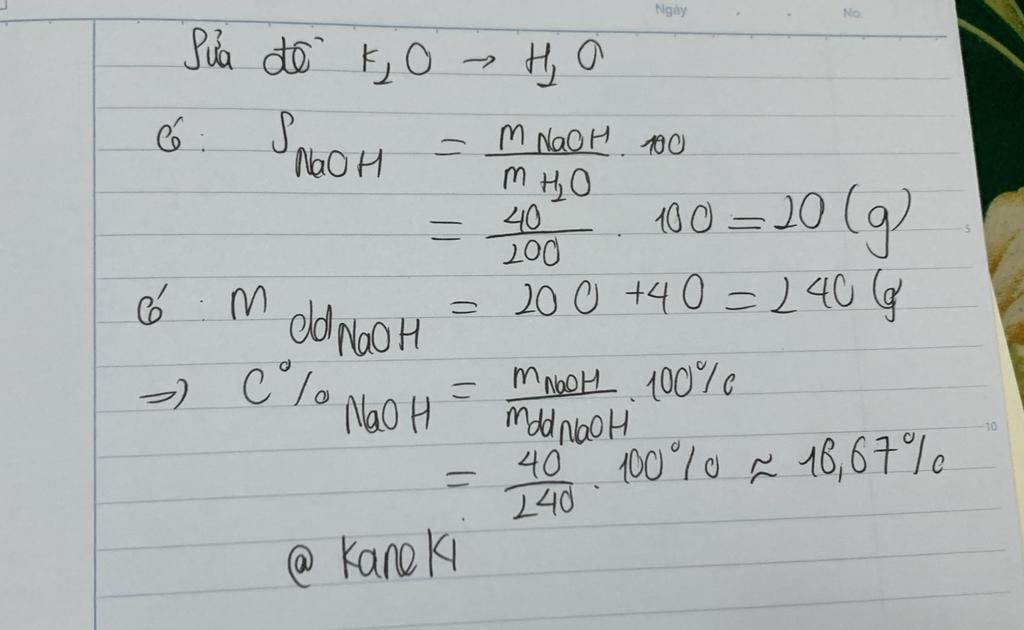 Ngày . . No.
Sửa đề K₂O → H₂O
Có: S NaOH = m NaOH / m H₂O . 100
= 40/200 . 100 = 20 (g)
5
Có: m dd NaOH = 200 + 40 = 240 (g
=> C% NaOH = m NaOH / m dd NaOH . 100%
10
= 40/240 . 100% ≈ 16,67%
@ Kaneki